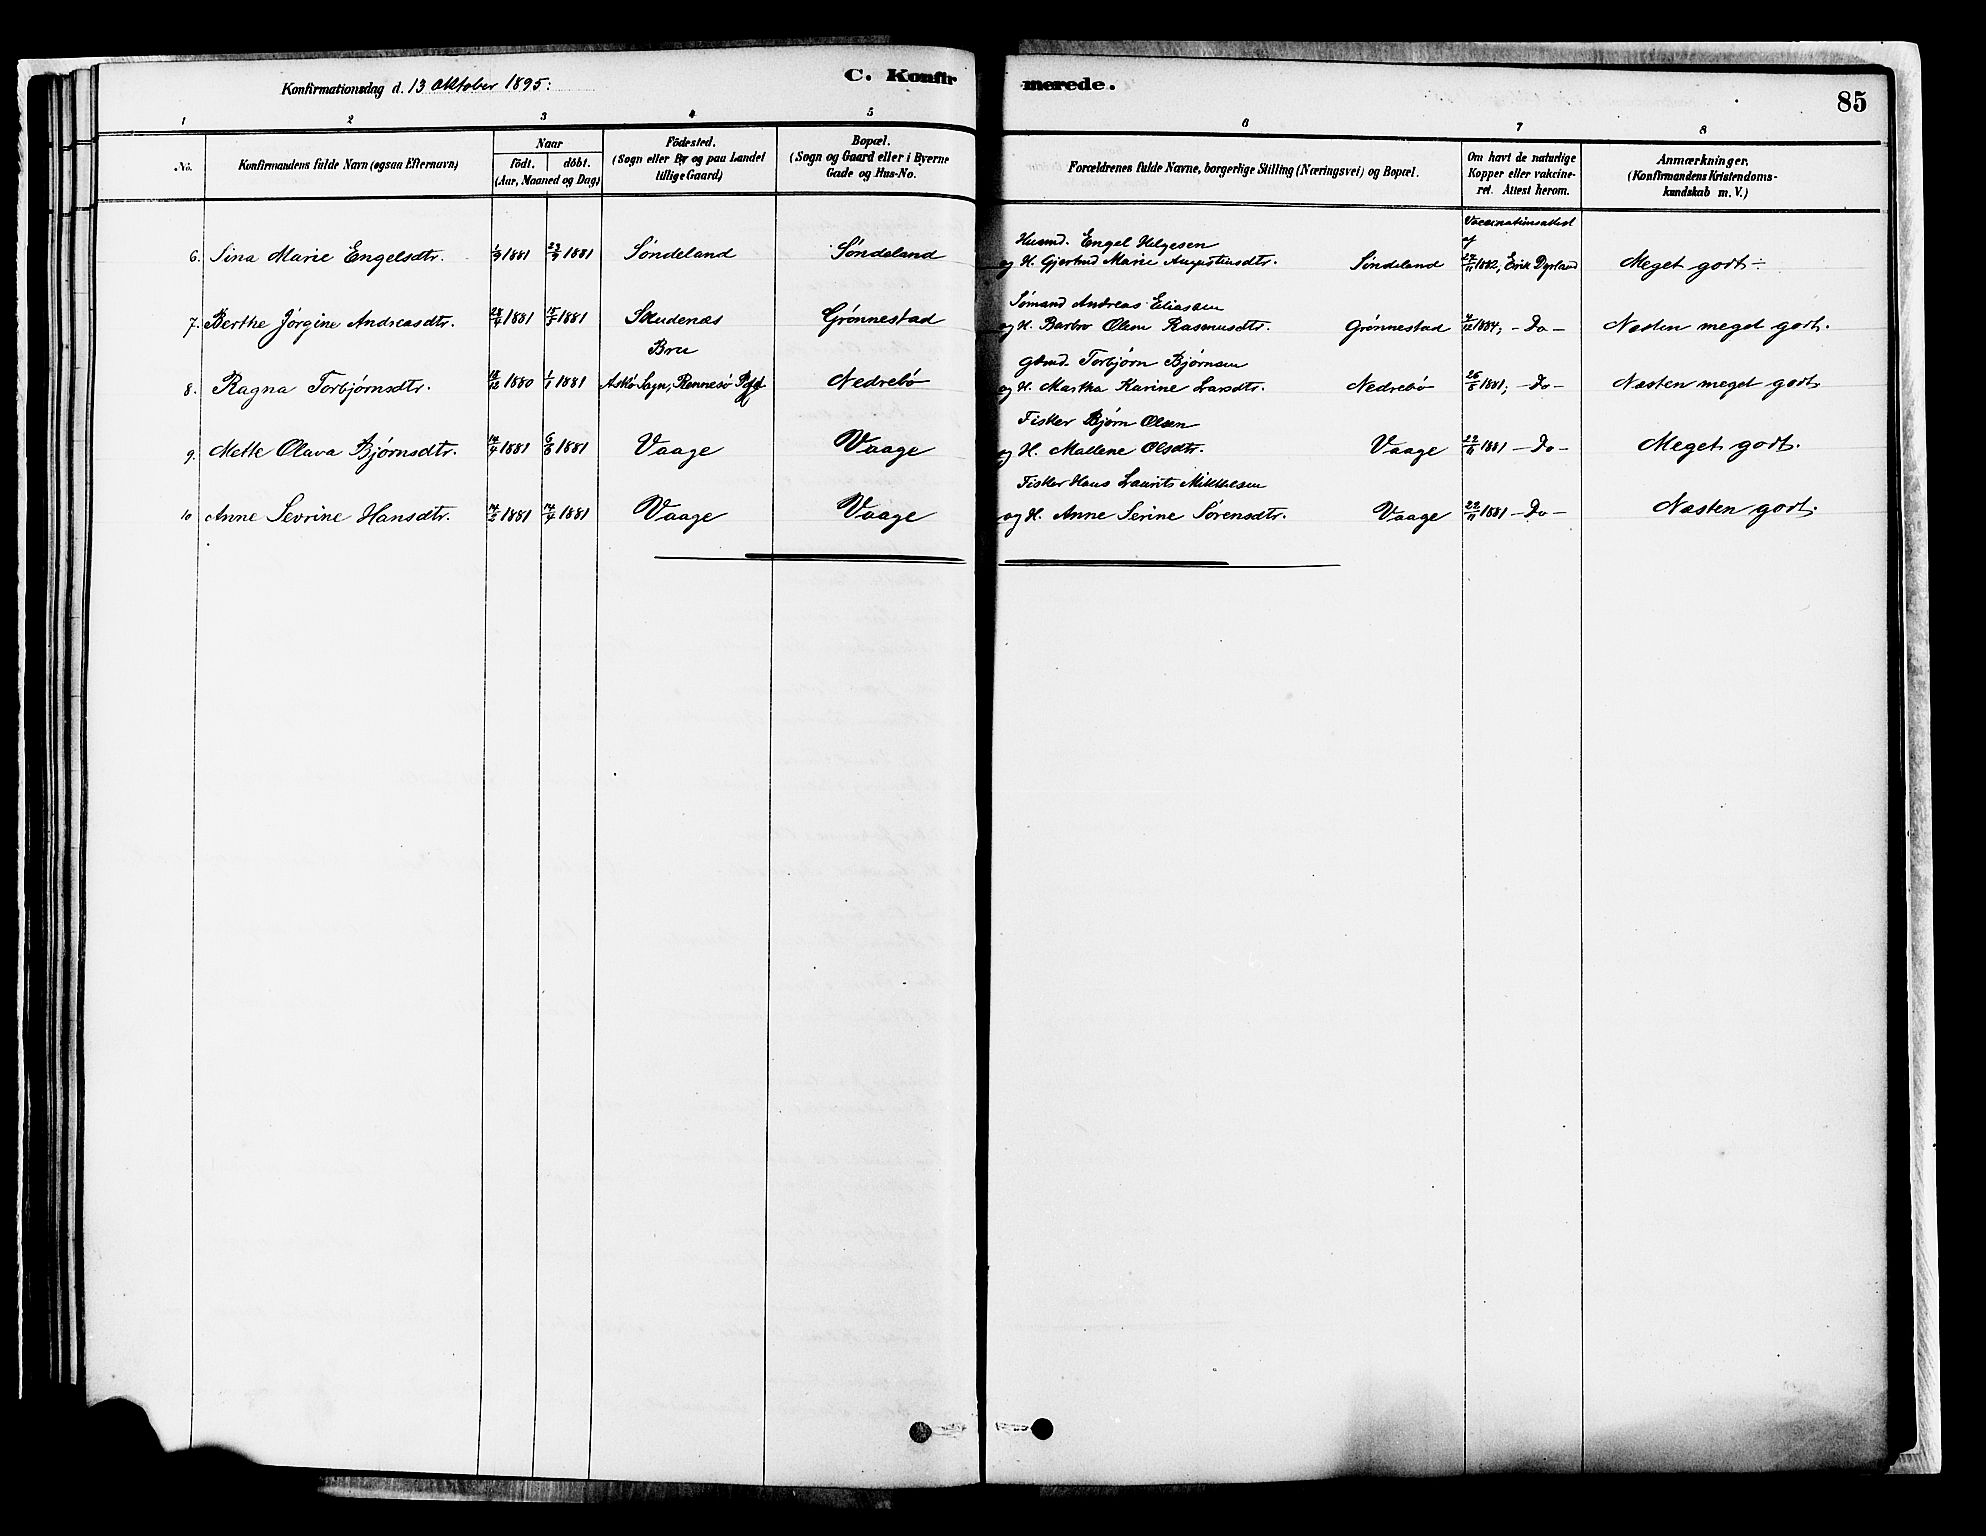 Konfirmationsdag d. 13 Oktober 1895:
C. Konfirmerede.
85
1 2 3 4 5 6 7 8
No.
Konfirmandens fulde Navn (ogsaa Efternavn)
Naar
födt. döbt.
(Aar, Maaned og Dag)
Födested.
(Sogn eller By og paa Landet
tillige Gaard)
Bopæl.
(Sogn og Gaard eller i Byerne
Gade og Hus-No.
Forældrenes fulde Navne, borgerlige Stilling (Næringsvei) og Bopæl.
Om havt de naturlige
Kopper eller vakcine-
ret. Attest herom.
Anmærkninger.
(Konfirmandens Kristendoms-
kundskab m. V.)
Vaccinationsattest
Husmd. Engel Helgesen af
6. Sina Marie Engelsdtr. 1/3 1881 1881 Søndeland Søndeland og H. Gjertrud Marie Augustinusdtr. Søndeland 1882, Erik Dyrland Meget godt
Sømand Andreas Eliassen
7. Berthe Jørgine Andreasdtr. 28/4 1881 1881 Skudenæs Grønnestad og H. Barbro Olene Rasmusdtr. Grønnestad 1884, - Do - Næsten meget godt.
Bru Gbmd. Torbjørn Bjørnsen
8. Ragna Torbjørnsdtr. 18/12 1880 1/1 1881 Askø Sogn, Rennesø Nedrebø og H. Martha Karine Larsdtr. Nedrebø 1881, - Do - Næsten meget godt
Fisker Bjørn Olsen
9. Mette Olava Bjørnsdtr. 14/4 1881 6/6 1881 Vaage Vaage og H. Mallene Olsdtr. Vaage 22/11 1881 - Do - Meget godt.
Fisker Hans Laurits Mikkelsen
10 Anne Sevrine Hansdtr. 1881 1881 Vaage Vaage og H. Anne Serine Sørensdtr. Vaage 22/11 1881 - Do - Næsten godt.